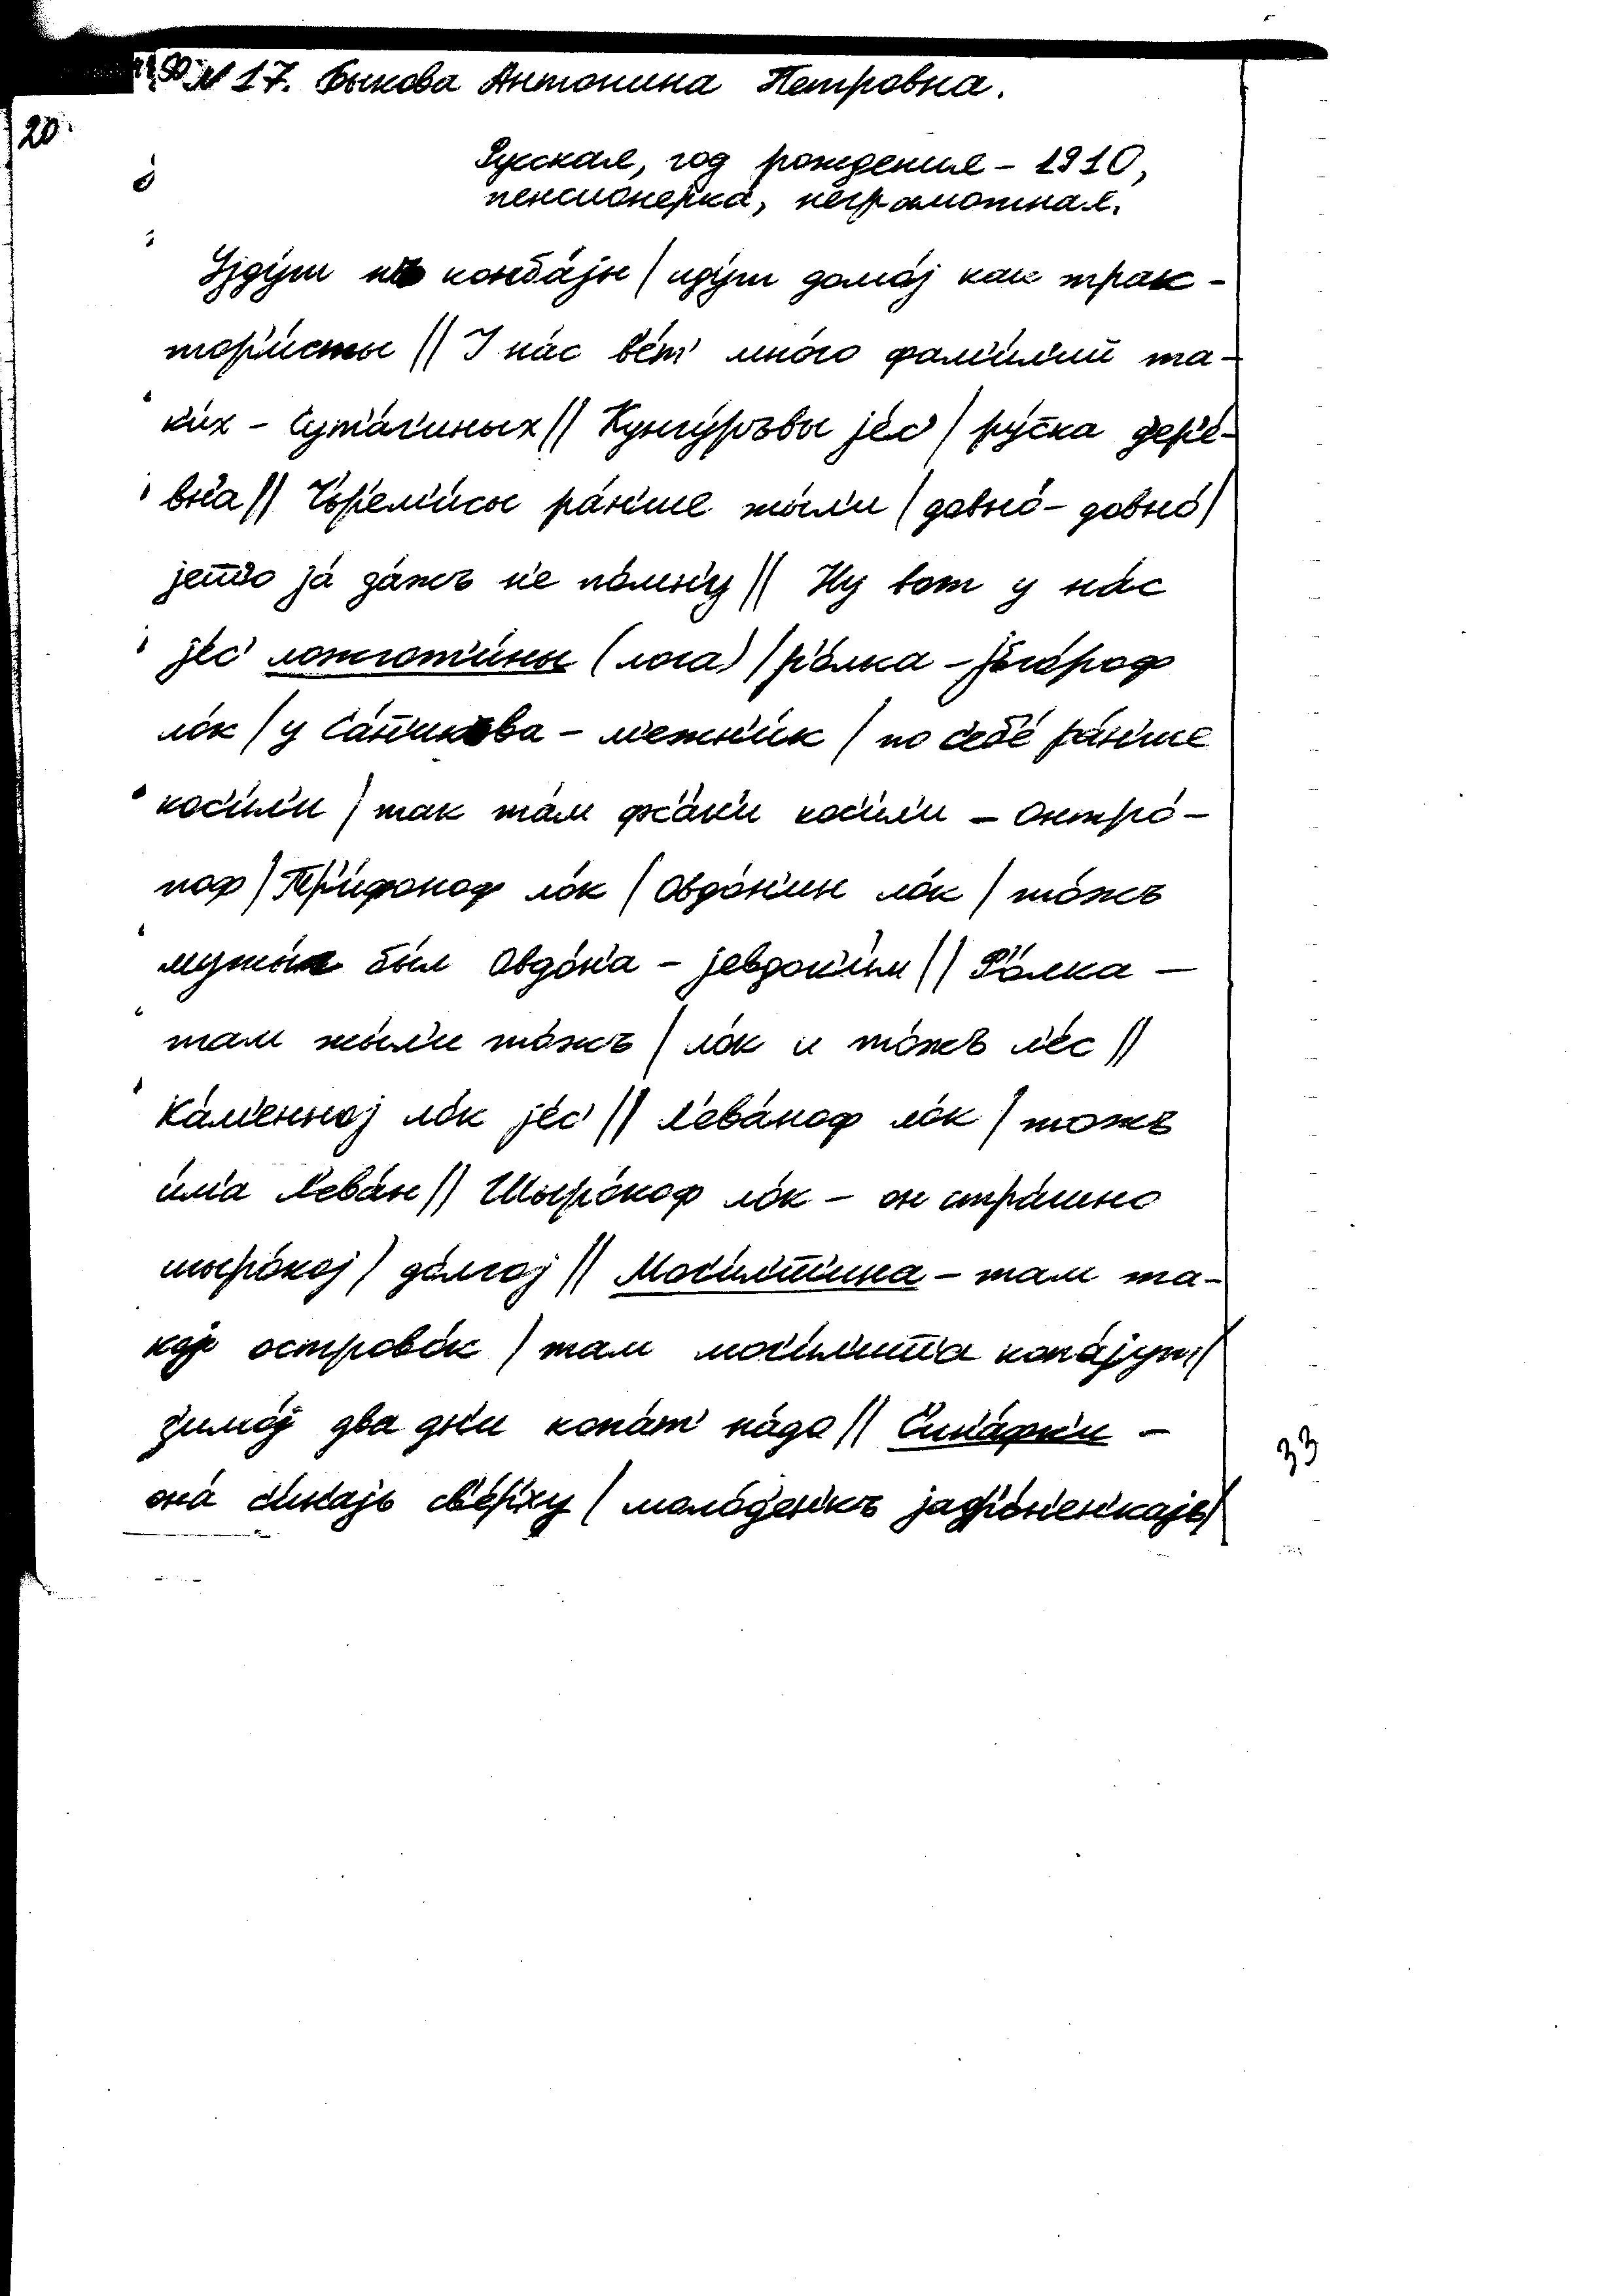 N 17. Быкова Антонина Петровна.
20
Русская, год рождения – 1910,
пенсионерка, неграмотная.
Уjду́т нъ конба́jн / иду́т домо́j как трак-
тор'и́сты // У на́с в'е́т' мно́го фам'и́л'ий та-
к'и́х – Сут'а́г'иных // Кунгу́ръвы jе́с' / ру́с̄ка д'ер'е́-
вн'а // Ч'ьр'ем'и́сы ра́н'ше жы́л'и / давно́ – давно́ /
jа́ да́жъ н'е по́мн'у // Ну вот у на́с
jе́с' ложгот'и́ны (лога) / р'о́лка – jьго́роф
ло́к / у – м'ежн'и́к / по с'еб'е́ ра́н'ше
кос'и́л'и / так та́м фс'а́к'и кос'и́л'и – Онтро́-
поф / Тр'и́фоноф ло́к / Овдо́н'ин ло́к / то́жъ
мужы́к бы́л Овдо́н'а – jевдок'и́м // Р'о́лка –
там жы́л'и то́жъ / ло́к и то́жъ л'е́с //
Ка́м'енноj ло́к jе́с' // Л'ева́ноф ло́к / тожъ
и́м'а Л'ева́н // Шыро́коф ло́к – он стра́шно
шыро́коj / до́лгоj // Мог'и́л'т'ина – там та-
коj острово́к / там копа́jут /
з'имо́j два дн'и копа́т' на́до // С'ин'а́фк'и –
она́ с'и́н'аjь св'е́рху / моло́д'ен'къ
33